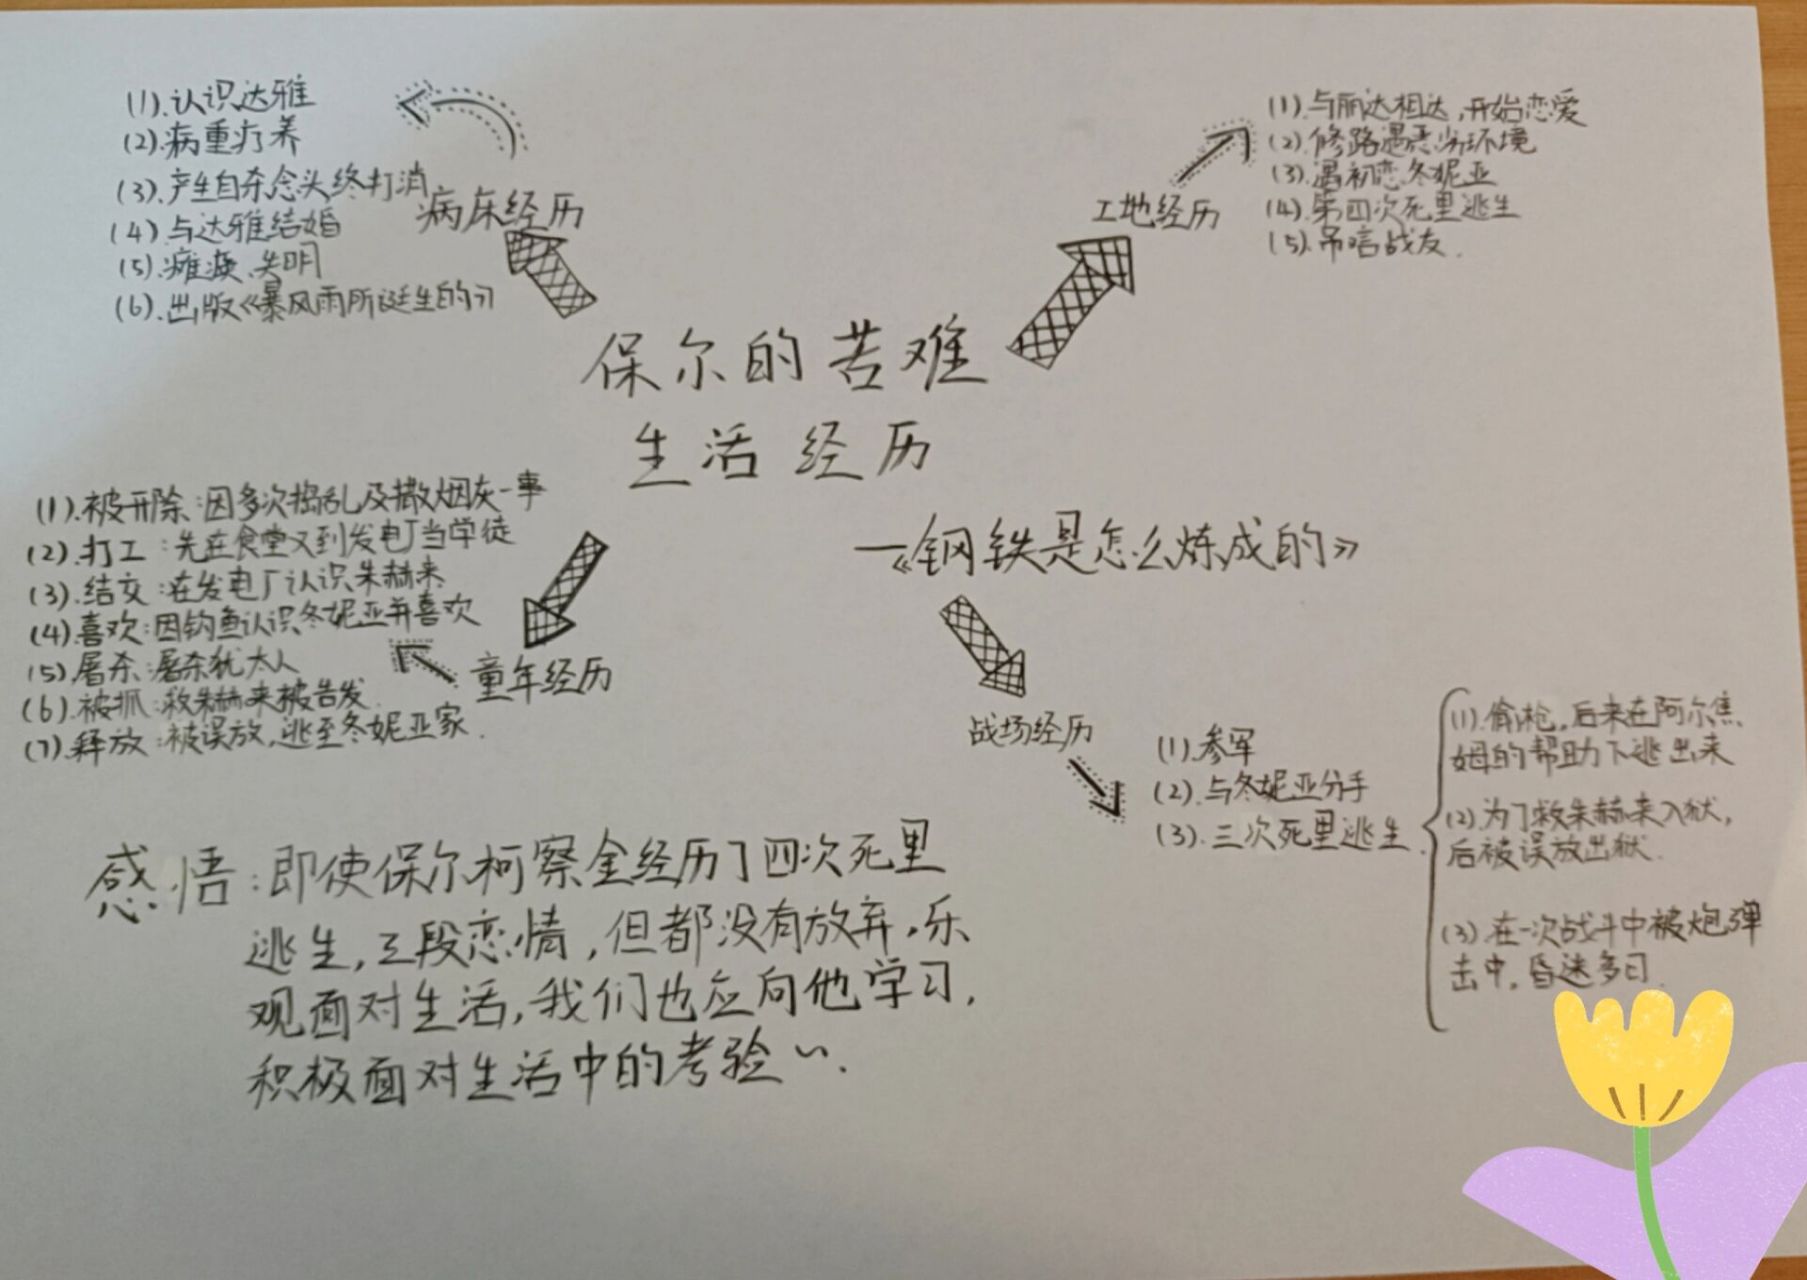 保尔的苦难
生活经历
—《钢铁是怎么炼成的》
病床经历
(1).认识达雅
(2).病重疗养
(3).产生自杀念头终打消
(4).与达雅结婚
(5).瘫痪、失明
(6).出版《暴风雨所诞生的》
工地经历
(1).与丽达相达,开始恋爱
(2).修路遇恶劣环境
(3).遇初恋冬妮亚
(4).第四次死里逃生
(5).吊唁战友.
童年经历
(1).被开除:因多次捣乱及撒烟灰一事
(2).打工:先在食堂又到发电厂当学徒
(3).结交:在发电厂认识朱赫来
(4).喜欢:因钓鱼认识冬妮亚并喜欢
(5).屠杀:屠杀犹太人
(6).被抓:救朱赫来被告发.
(7).释放:被误放,逃至冬妮亚家.
战场经历
(1).参军
(2).与冬妮亚分手
(3).三次死里逃生.
(1).偷枪,后来在阿尔焦
姆的帮助下逃出来
(2).为了救朱赫来入狱,
后被误放出狱.
(3).在一次战斗中被炮弹
击中,昏迷多日.
感悟:即使保尔柯察金经历了四次死里
逃生,三段恋情,但都没有放弃,乐
观面对生活,我们也应向他学习,
积极面对生活中的考验~.